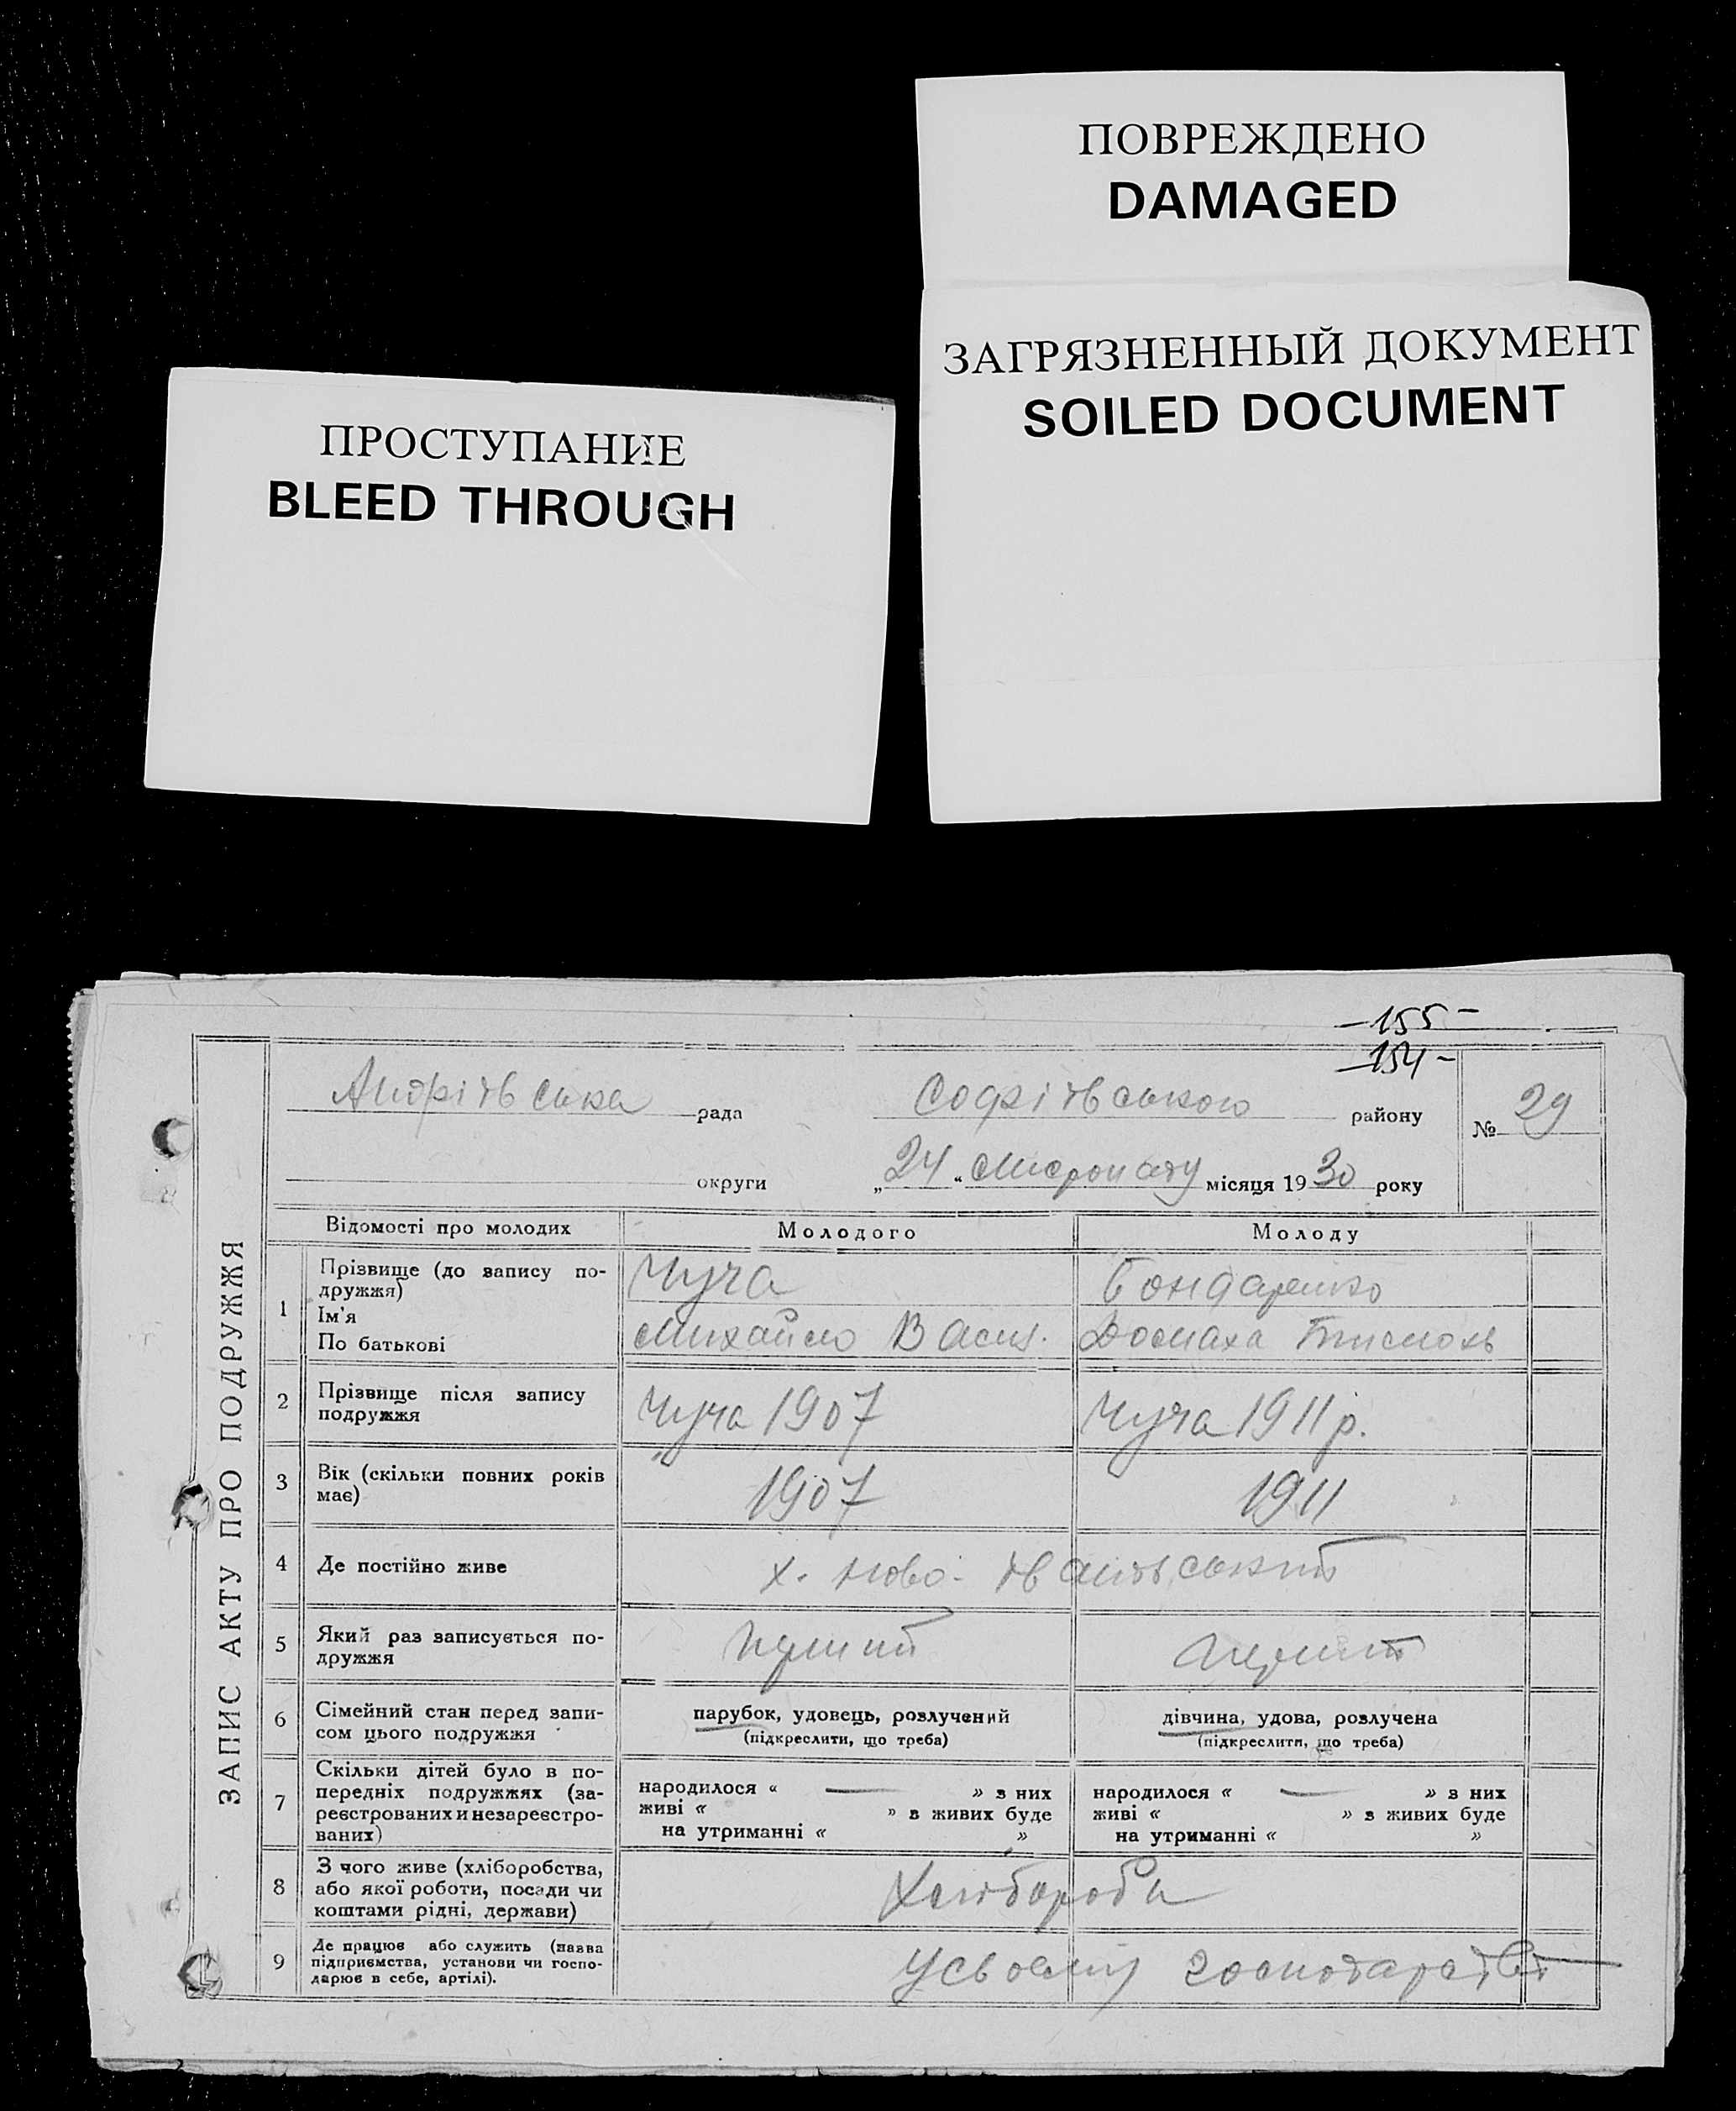 ПОВРЕЖДЕНО
DAMAGED
ЗАГРЯЗНЕННЫЙ ДОКУМЕНТ
SOILED DOCUMENT
ПРОСТУПАНИЕ
BLEED THROUGH
-155-
-154-
ЗАПИС АКТУ ПРО ПОДРУЖЖЯ
рада
району
№ 29
округи
„24“ місяця 1930 року
Відомості про молодих
Молодого
Молоду
1
Прізвище (до запису по-
дружжя)
Ім'я
По батькові
Чуча
Михайло Васил.
Бондаренко
Домаха
2
Прізвище після запису
подружжя
Чуча 1907
Чуча 1911 р.
3
Вік (скільки повних років
має)
1907
1911
4
Де постійно живе
х. Ново-
5
Який раз записується по-
дружжя
6
Сімейний стан перед запи-
сом цього подружжя
парубок, удовець, розлучений
(підкреслити, що треба)
дівчина, удова, розлучена
(підкреслити, що треба)
7
Скільки дітей було в по-
передніх подружжях (за-
реєстрованих и незареєстро-
ваних)
народилося « — » з них
живі « » з живих буде
на утриманні « »
народилося « — » з них
живі « » з живих буде
на утриманні « »
8
З чого живе (хліборобства,
або якої роботи, посади чи
коштами рідні, держави)
9
Де працює або служить (назва
підприємства, установи чи госпо-
дарює в себе, артілі).